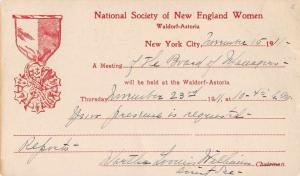 National Society of New England Women
Waldorf-Astoria
New York City, November 15 1911
A Meeting of the Board of Managers
will be held at the Waldorf-Astoria
Thursday November 23rd 1911, at 10
Your presence is requested
Reports -
Chairman.